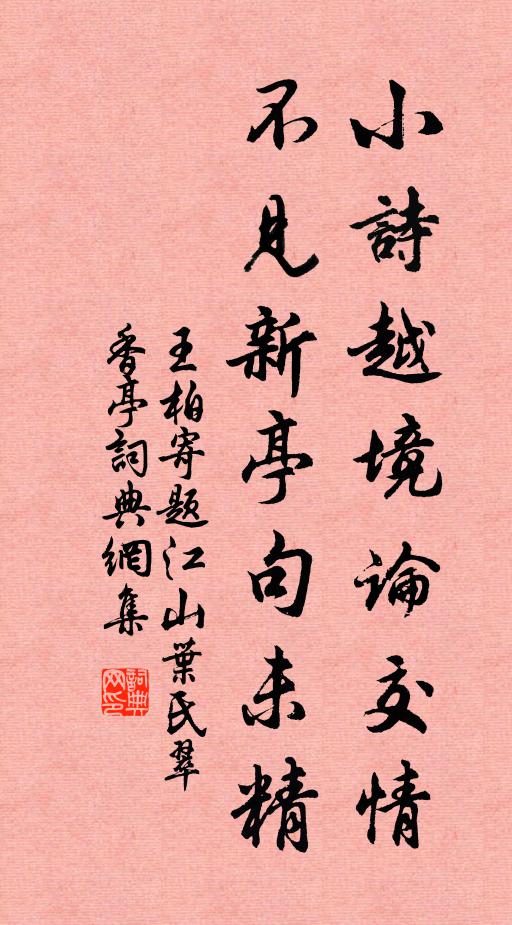 小詩越境論交情
不見新亭句未精
王柏寄题江山葉氏翠
香亭詞典網集
詞典网印